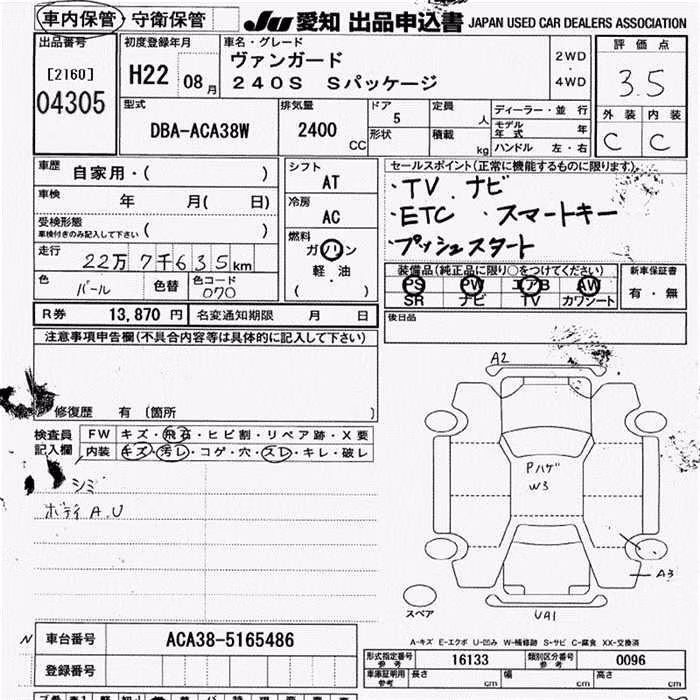 車内保管・守衛保管
JU 愛知 出品申込書 JAPAN USED CAR DEALERS ASSOCIATION
出品番号
[2160]
04305
初度登録年月
H22 08月
車名・グレード
ヴァンガード
240S Sパッケージ
2WD
・
4WD
評価点
3.5
外装 内装
C C
型式
DBA-ACA38W
排気量
2400
CC
ドア
5
形状
定員
人
積載
kg
ディーラー・並行
モデル年式 年
ハンドル 左・右
車歴 自家用・( )
車検 年 月( 日)
受検形態
車検付きのみ記入して下さい ( )
走行 22万7千635km
色 パール 色替 色コード 070
シフト
AT
冷房
AC
燃料
ガソリン
軽・油
( )
セールスポイント(正常に機能するものに限ります)
・TV ナビ
・ETC ・スマートキー
・プッシュスタート
装備品(純正品に限り○をつけてください)
PS PW エアB AW
SR ナビ TV カワシート
新車保証書
有・無
R券 13,870円 名変通知期限 月 日
後日品
注意事項申告欄(不具合内容等は具体的に記入して下さい)
修復歴 有 〔箇所 〕
検査員記入欄
FW キズ・飛石・ヒビ割・リペア跡・X要
内装 キズ・汚レ・コゲ・穴・スレ・キレ・破レ
シミ
ボディA.U
A2
Pハゲ
W3
A3
UA1
スペア
A-キズ E-エクボ U-凹み W-補修跡 S-サビ C-腐食 XX-交換済
N
車台番号 ACA38-5165486
登録番号
形式指定番号 参考 16133 類別区分番号 参考 0096
車庫証明用 参考 長さ cm 幅 cm 高さ cm